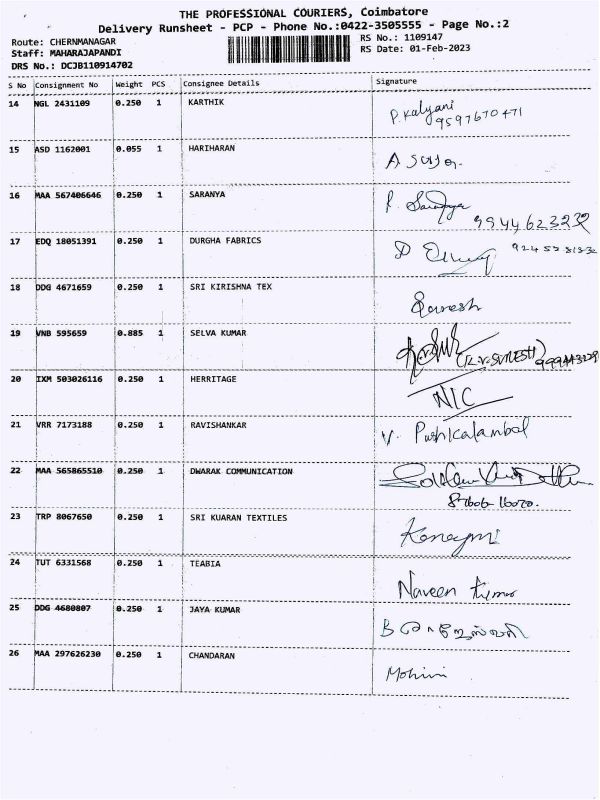 THE PROFESSIONAL COURIERS, Coimbatore
Delivery Runsheet - PCP - Phone No.:0422-3505555 - Page No.:2
Route: CHERNMANAGAR RS No.: 1109147
Staff: MAHARAJAPANDI RS Date: 01-Feb-2023
DRS No.: DCJB110914702
S No Consignment No Weight PCS Consignee Details Signature
14 NGL 2431109 0.250 1 KARTHIK P. Kalyani
9597670471
15 ASD 1162001 0.055 1 HARIHARAN
16 MAA 567406646 0.250 1 SARANYA
9944623232
17 EDQ 18051391 0.250 1 DURGHA FABRICS
18 DDG 4671659 0.250 1 SRI KIRISHNA TEX
19 VNB 595659 0.885 1 SELVA KUMAR
20 IXM 503026116 0.250 1 HERRITAGE NIC
21 VRR 7173188 0.250 1 RAVISHANKAR V. Pushkalambal
22 MAA 565865510 0.250 1 DWARAK COMMUNICATION
23 TRP 8067650 0.250 1 SRI KUARAN TEXTILES
24 TUT 6331568 0.250 1 TEABIA Naveen Kumar
25 DDG 4680807 0.250 1 JAYA KUMAR
26 MAA 297626230 0.250 1 CHANDARAN Mohini